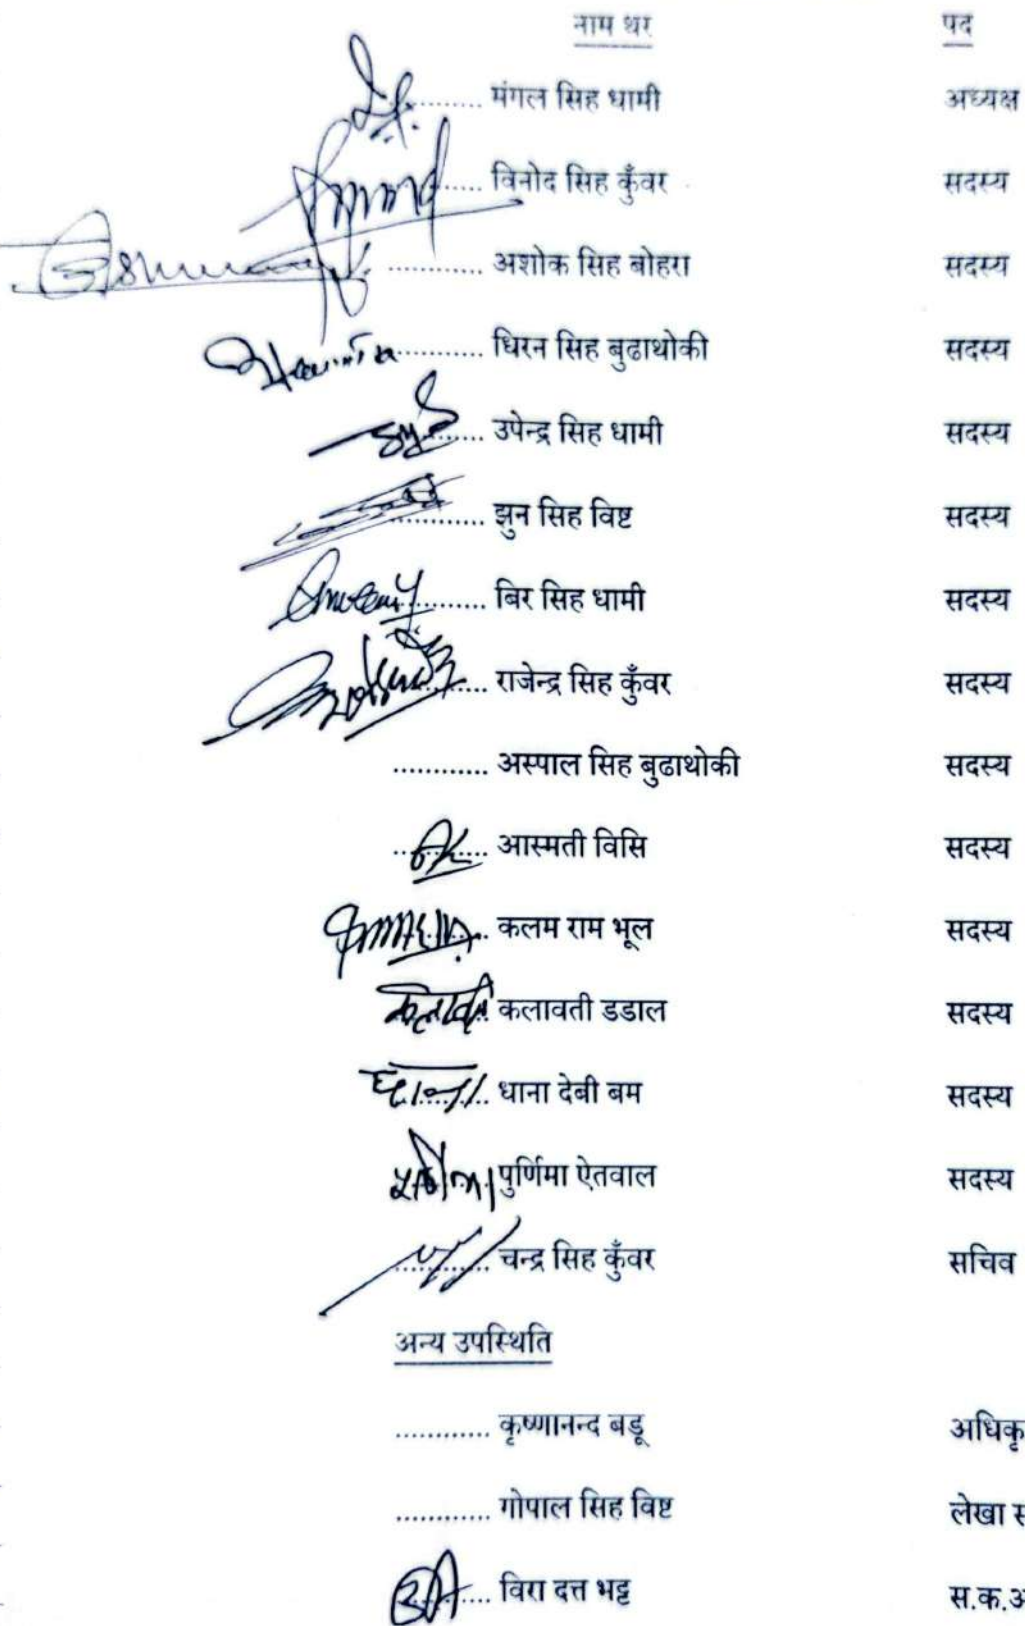 नाम थर पद
............ मंगल सिह धामी अध्यक्ष
............ विनोद सिह कुँवर सदस्य
............ अशोक सिह बोहरा सदस्य
............ धिरन सिह बुढाथोकी सदस्य
............ उपेन्द्र सिह धामी सदस्य
............ झुन सिह विष्ट सदस्य
............ बिर सिह धामी सदस्य
............ राजेन्द्र सिह कुँवर सदस्य
............ अस्पाल सिह बुढाथोकी सदस्य
............ आस्मती विसि सदस्य
............ कलम राम भूल सदस्य
कलावती कलावती डडाल सदस्य
धाना धाना देबी बम सदस्य
............ पुर्णिमा ऐतवाल सदस्य
............ चन्द्र सिह कुँवर सचिव
अन्य उपस्थिति
............ कृष्णानन्द बडू अधिकृ
............ गोपाल सिह विष्ट लेखा स
............ विरा दत्त भट्ट स.क.अ